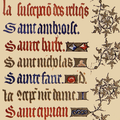 la suscepcion des reliq̄s
Saint ambroise.
Sainte barbe.
Saint nicholas
Sainte fare.
la concepcion nr̄e dame
Saint ciprian